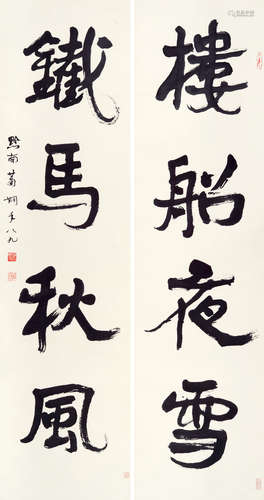 樓船夜雪
鐵馬秋風
黔南蕭嫻年八九